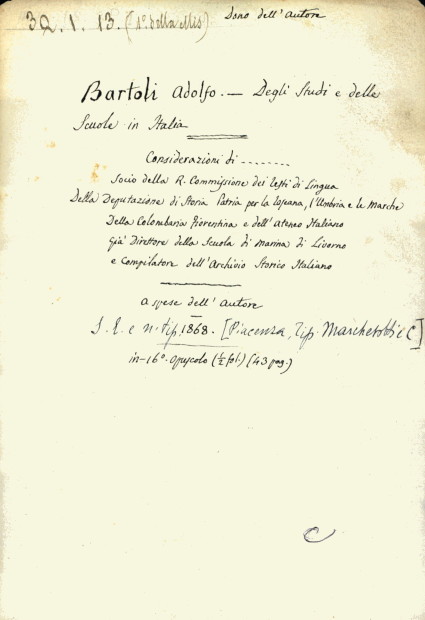 32.1.13. (1º della Mis) Dono dell'Autore
Bartoli Adolfo. — Degli Studi e delle
Scuole in Italia
Considerazioni di ........
Socio della R. Commissione dei Testi di Lingua
Della Deputazione di Storia Patria per la Toscana, l'Umbria e le Marche
Della Colombaria Fiorentina e dell'Ateneo Italiano
Già Direttore della Scuola di Marina di Livorno
e Compilatore dell'Archivio Storico Italiano
a spese dell'autore
S. l. e n. tip. 1868. [Piacenza, Tip. Marchetotti e C]
in-16º. opuscolo (½ fol.) (43 pag.)
C